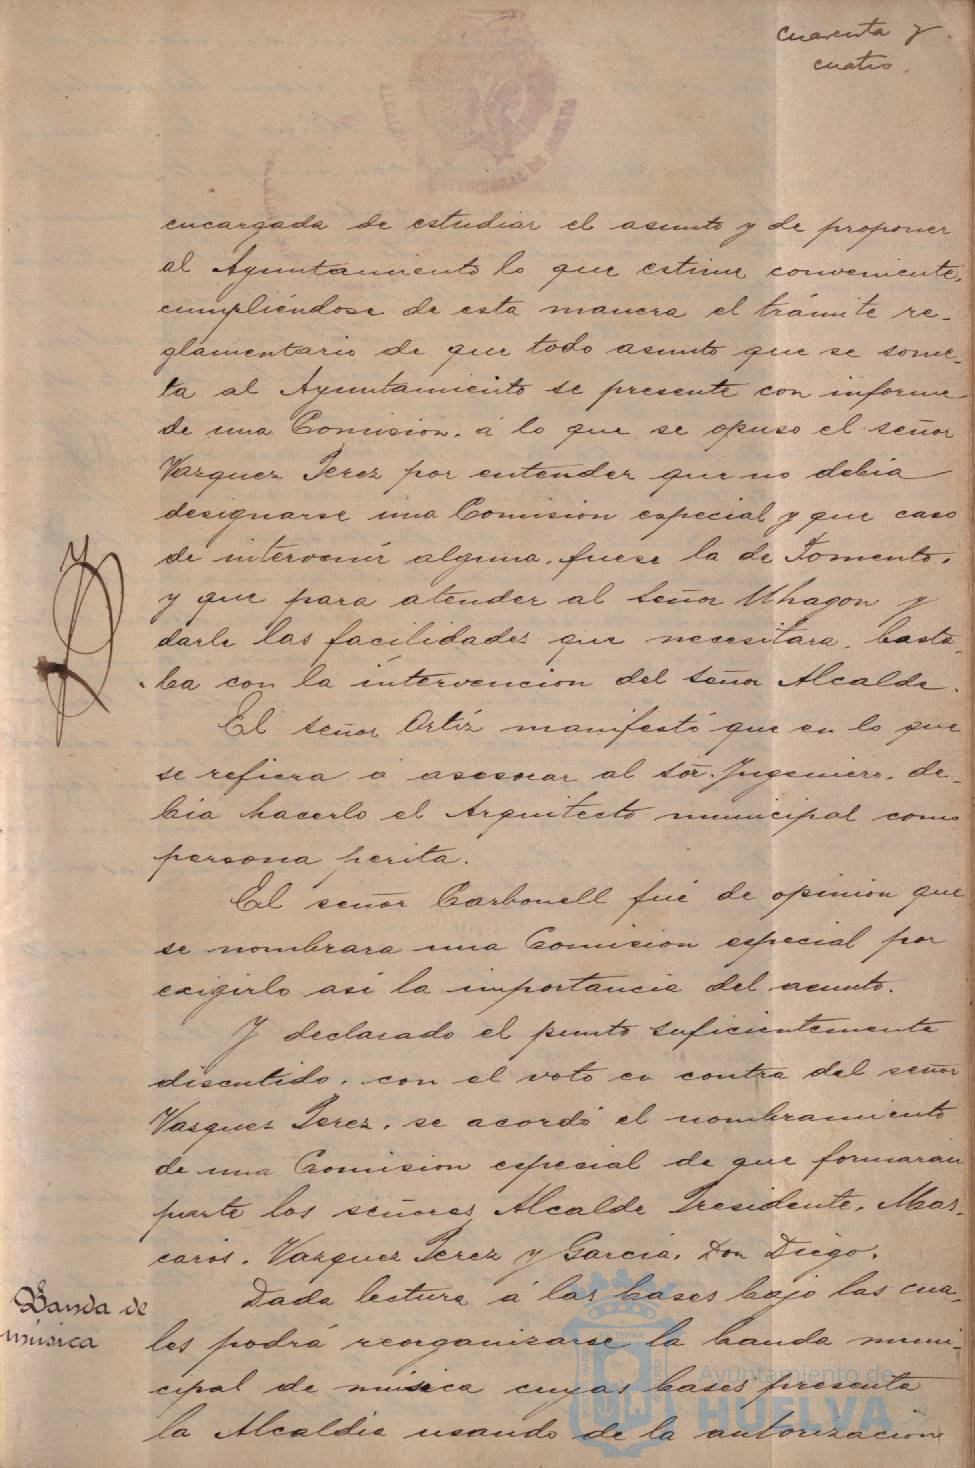 cuarenta y
cuatro.
encargada de estudiar el asunto y de proponer
al Ayuntamiento lo que estime conveniente,
cumpliéndose de esta manera el trámite re-
glamentario de que todo asunto que se some-
ta al Ayuntamiento se presente con informe
de una Comision. á lo que se opuso el señor
Vazquez Perez por entender que no debia
designarse una Comision especial y que caso
de intervenir alguna, fuese la de Fomento,
y que para atender al señor Uhagon y
darle las facilidades que necesitara, basta-
ba con la intervencion del señor Alcalde.
El señor Ortíz manifestó que en lo que
se refiera á asesorar al Sor. Ingeniero, de-
bia hacerlo el Arquitecto municipal como
persona perita.
El señor Carbonell fué de opinion que
se nombrara una Comision especial por
exigirlo asi la importancia del asunto.
Y declarado el punto suficientemente
discutido, con el voto en contra del señor
Vasquez Perez, se acordó el nombramiento
de una Comision especial de que formaran
parte los señores Alcalde Presidente, Mas-
carós, Vazquez Perez y García, Don Diego.
Banda de
música
Dada lectura á las bases bajo las cua-
les podrá reorganizarse la banda muni-
cipal de música cuyas bases presenta
la Alcaldia usando de la autorizacion
Ayuntamiento de
HUELVA